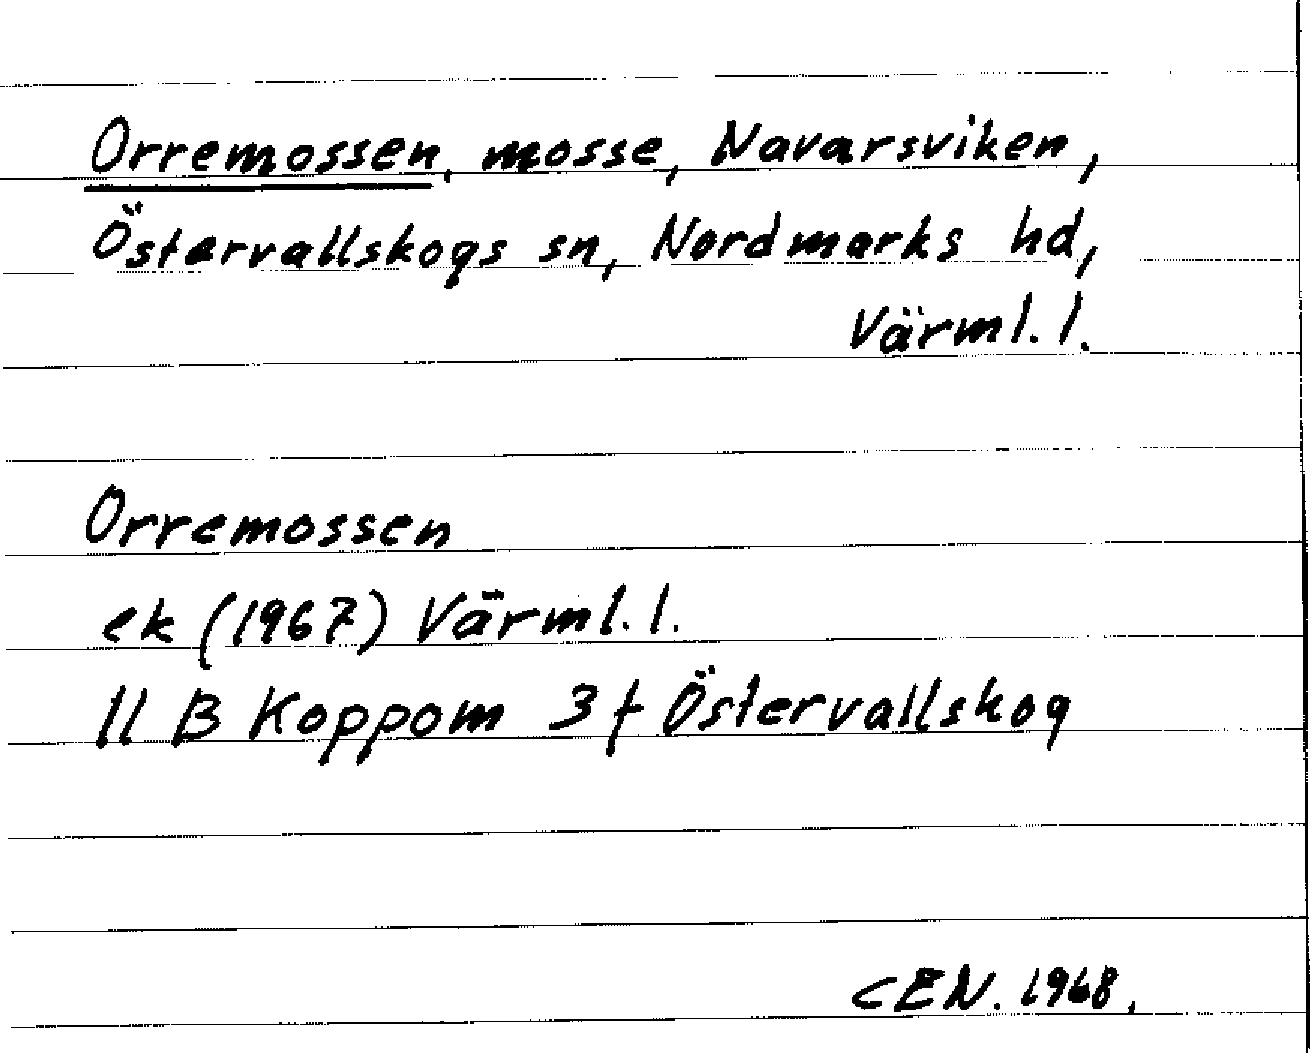 Orremossen, mosse, Navarsviken,
Östervallskogs sn, Nordmarks hd,
Värml. l.
Orremossen
ek (1967) Värml. l.
11 B Koppom 3 f Östervallskog
CEN. 1968.